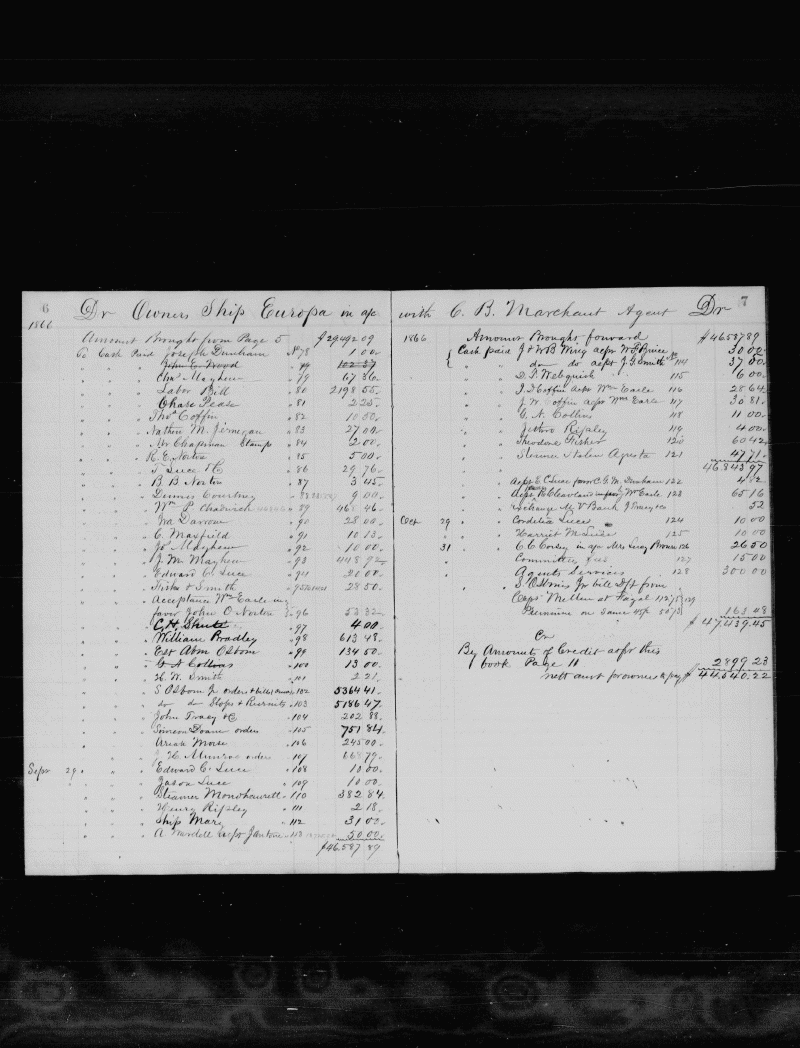 6
Dr Owners Ship Europa in a/c
1866
Amount Brought from Page 5
To Cash Paid Joseph Dunham No 78 1 00
John C. Wood 102 37
Chs Mayhew 79 67 36
Labor Bill 80 2198 55
Chase Pease 81 2 25
Thos Coffin 82 10 50
Nathen M. Jernegan 83 27 00
Mr Chapman Stamps 84 2 00
R. E. Norton 85 5 00
T Luce & C 86 29 76
B B Norton 87 3 45
Dennis Courtney 9 00
Wm P Chadwick 89 46 46
Wm Darrow 90 28 00
C. Mayfield 91 10 13
Jos Mayhew 92 10 00
J. M. Mayhew 93
Edward C. Luce 20 00
Fisher & Smith 28 50
Acceptance Wm Earle in
favor John O Norton 96 53 32
C. H. Shute 97 4 00
William Bradley 98 613 48
Est Abm Osborn 99 134 50
100 13 00
H. W. Smith 101 2 21
S Osborn Jr orders & bills 102 5364 41
do do Slops & Recruits 103 5186 47
John Tracy & C 104 202 88
Simeon Doane orders 105 751 84
Uriah Morse 106 245 00
J. H. Munroe orders 107 668 79
Sepr 29 Edward C. Luce 108 10 00
Jason Luce 109 10 00
Steamer Monohansett 110 382 84
Henry Ripley 111 2 18
Ship Mary 112 31 00
A 113 50 00
$46,587 89
7
with C. B. Marchant Agent Dr
1866 Amount Brought forward $46587 89
Cash paid J & W B Wing 30 00
do do J. G. Smith 114 37 00
D. P. Webquish 115 6 00
J. T. Coffin Wm Earle 116 28 64
J. W. Coffin Wm Earle 117 30 81
C. N. Collins 118 11 00
Jethro Ripley 119 4 00
Theodore Fisher 120 60 42
121 47 71
46,843 97
E. C. Luce favor C. G. M. Dunham 122 4 02
Cleavland Wm Earle 123 65 16
Exchange M V Bank 52
Oct 29 Cordelia Luce 124 10 00
Harriet M. Luce 125 10 00
31 C. C. Corsey in a/c Mrs Lucy 126 26 50
Committee fees 127 15 00
Agents Services 128 300 00
S Osborn Jr bill Dft from
Capt Mellen at Fayal 129
Premium on same 163 48
$47,439.45
Cr
By Amount of Credit as per this
book Page 11 2899 23
nett amt for owners to pay $44,540.22